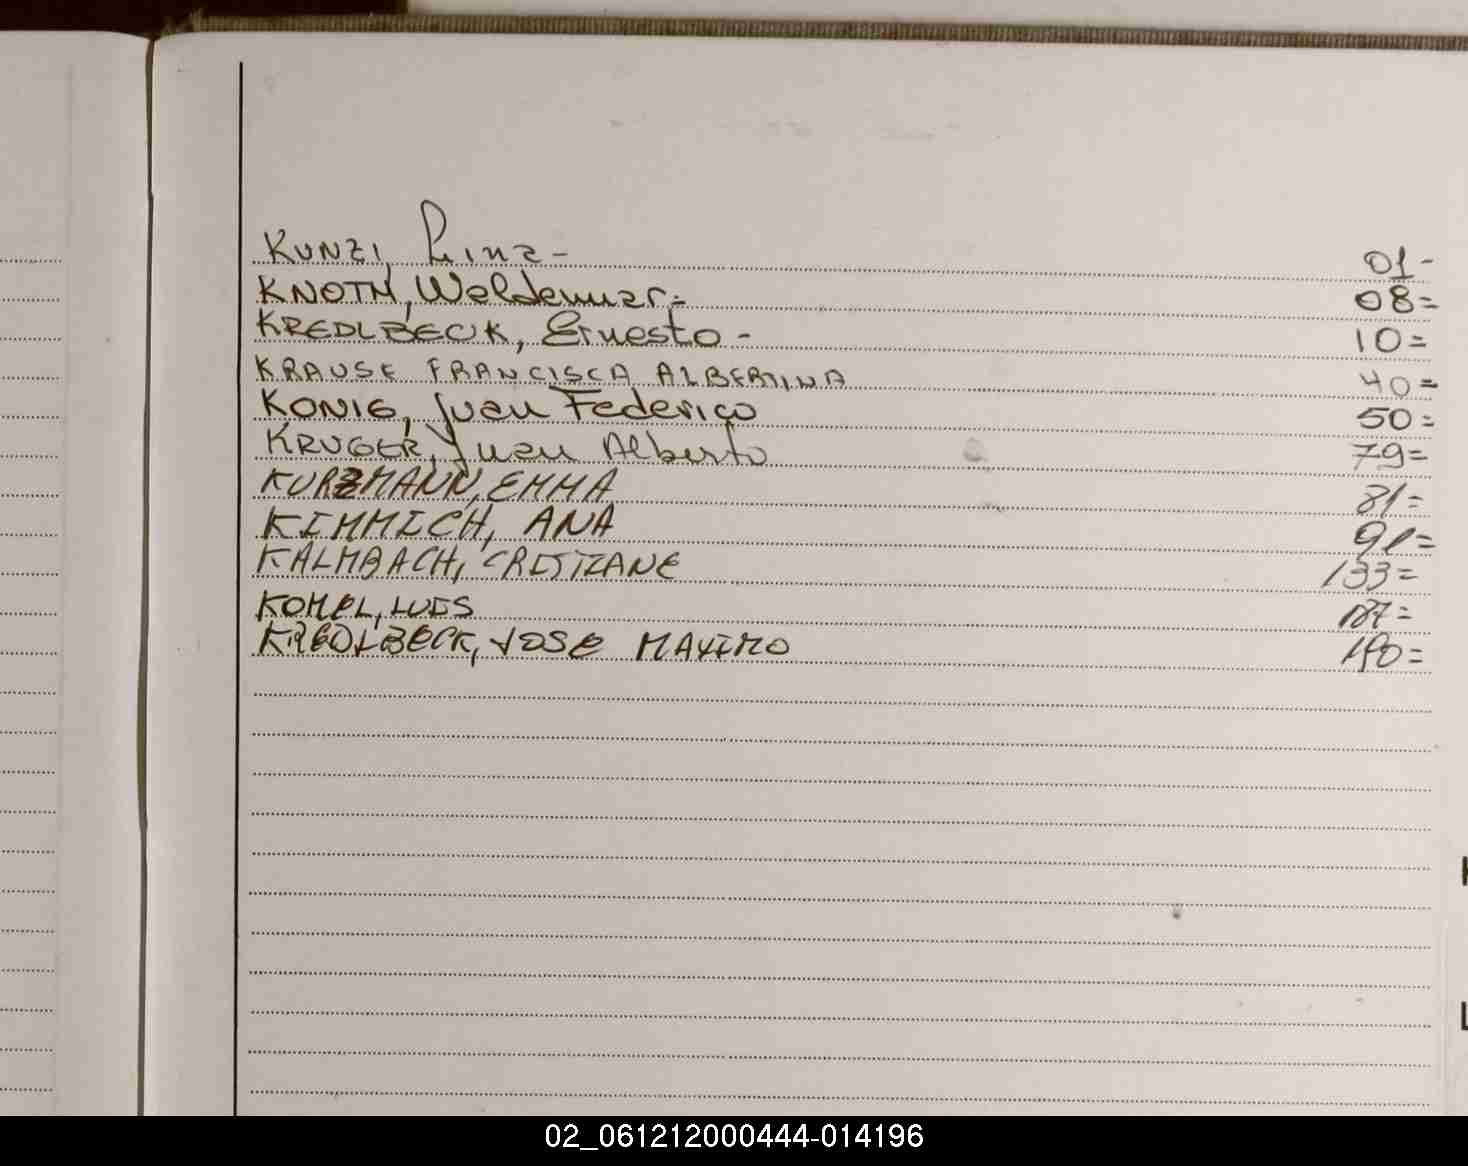 KUNZI, Lina - 01-
KNOTH, Waldemar.- 08=
KREDLBECK, Ernesto - 10=
KRAUSE FRANCISCA ALBERTINA 40=
KONIG, Juan Federico 50=
KRUGER, Juan Alberto 79=
KURZMANN, EMMA 81=
KIMMICH, ANA 91=
KALMBACH, CRISTIANE 133=
KOHEL, LUIS 187=
KREDLBECK, JOSE MAXIMO 190=
02_061212000444-014196